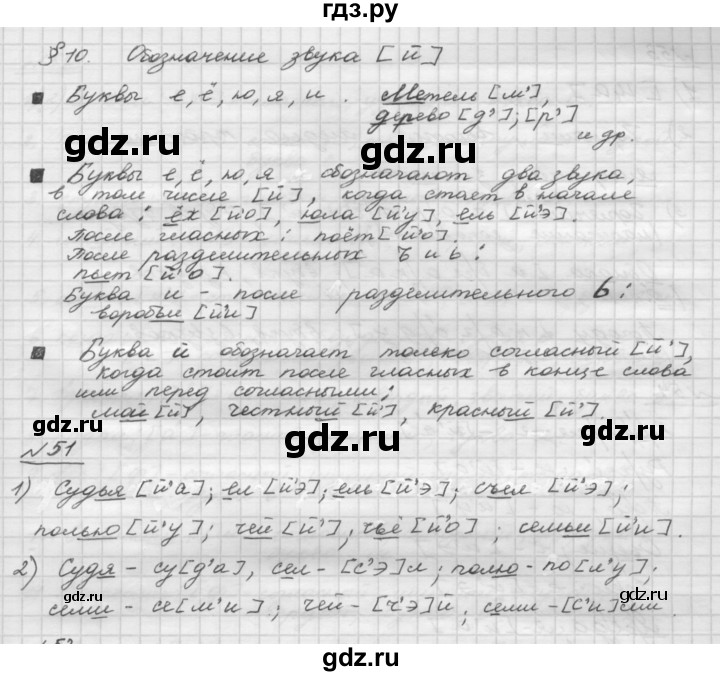 гдз.ру
§ 10. Обозначение звука [й]
Буквы е, ё, ю, я, и. Метель [м'],
дерево [д']; [р']
и др.
gdz.ru
gdz.ru
Буквы е, ё, ю, я обозначают два звука,
в том числе [й], когда стает в начале
слова: ёх [й'о], юла [й'у], ель [й'э].
После гласных: поёт [й'о].
После разделительных ъ и ь:
пьет [й'о].
Буква и - после разделительного ь:
воробьи [й'и]
gdz.ru
gdz.ru
Буква й обозначает только согласный [й'],
когда стоит после гласных в конце слова
или перед согласными:
май [й'], честный [й'], красный [й'].
gdz.ru
gdz.ru
№ 51
1) Судья [й'а]; ел [й'э]; ель [й'э]; съел [й'э];
полью [й'у]; чей [й'], чьё [й'о]; семьи [й'и].
gdz.ru
gdz.ru
2) Судя - су[д'а], сел - [с'э]л; полю - по[л'у];
семи - се[м'и]; чей - [ч'э]й; семи - [с'и]ми.
gdz.ru
gdz.ru